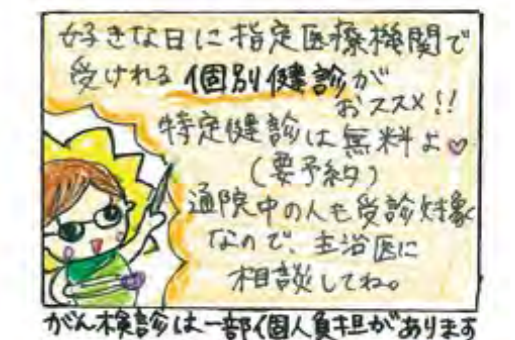 好きな日に指定医療機関で
受けれる個別健診が
おススメ!!
特定健診は無料よ♡
(要予約)
通院中の人も受診対象
なので、主治医に
相談してね。
がん検診は一部個人負担があります